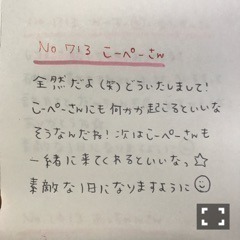 No.713 こーぺーさん
全然だよ(笑)どういたしまして!
こーぺーさんにも何かが起こるといいな
そうなんだね!次はこーぺーさんも
一緒に来てくれるといいなっ☆
素敵な1日になりますように☺